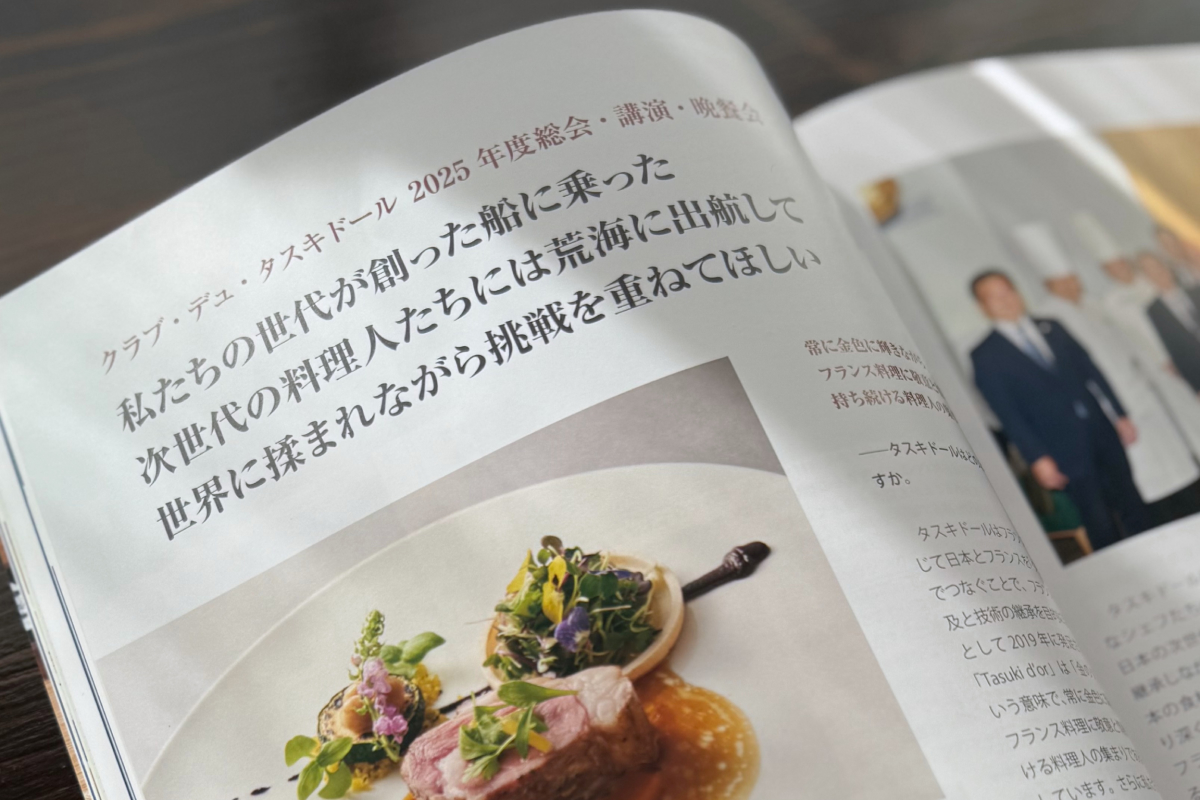 クラブ・デュ・タスキドール 2025 年度総会・講演・晩餐会
私たちの世代が創った船に乗った
次世代の料理人たちには荒海に出航して
世界に揉まれながら挑戦を重ねてほしい
常に金色に輝きながら
フランス料理に敬意と
持ち続ける料理人の
──タスキドールはどの
すか。
タスキドールはフラ
じて日本とフランスを
でつなぐことで、フラ
及と技術の継承を目的
として 2019 年に発
「Tasuki d'or」は「金の
いう意味で、常に金色に
フランス料理に敬意と
ける料理人の集まりで
しています。さらに
タスキ
なシェフた
日本の次世
継承しな
本の食
り深
フラ